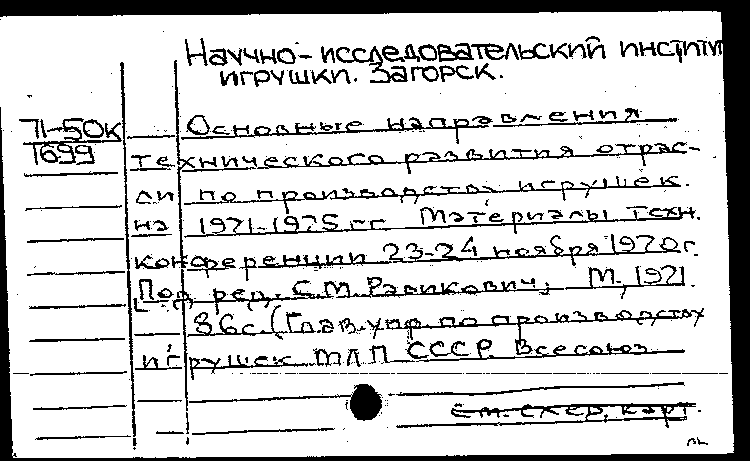 Научно-исследовательский институт
игрушки. Загорск.
71-50к
1699
Основные направления
технического развития отрас-
ли по производству игрушек.
на 1971-1975 гг. Материалы техн.
конференции 23-24 ноября 1970г.
[Под ред. С.М. Равикович; М., 1971.
36с. (Глав. упр. по производству
игрушек МЛП СССР. Всесоюз.
См. след. карт.